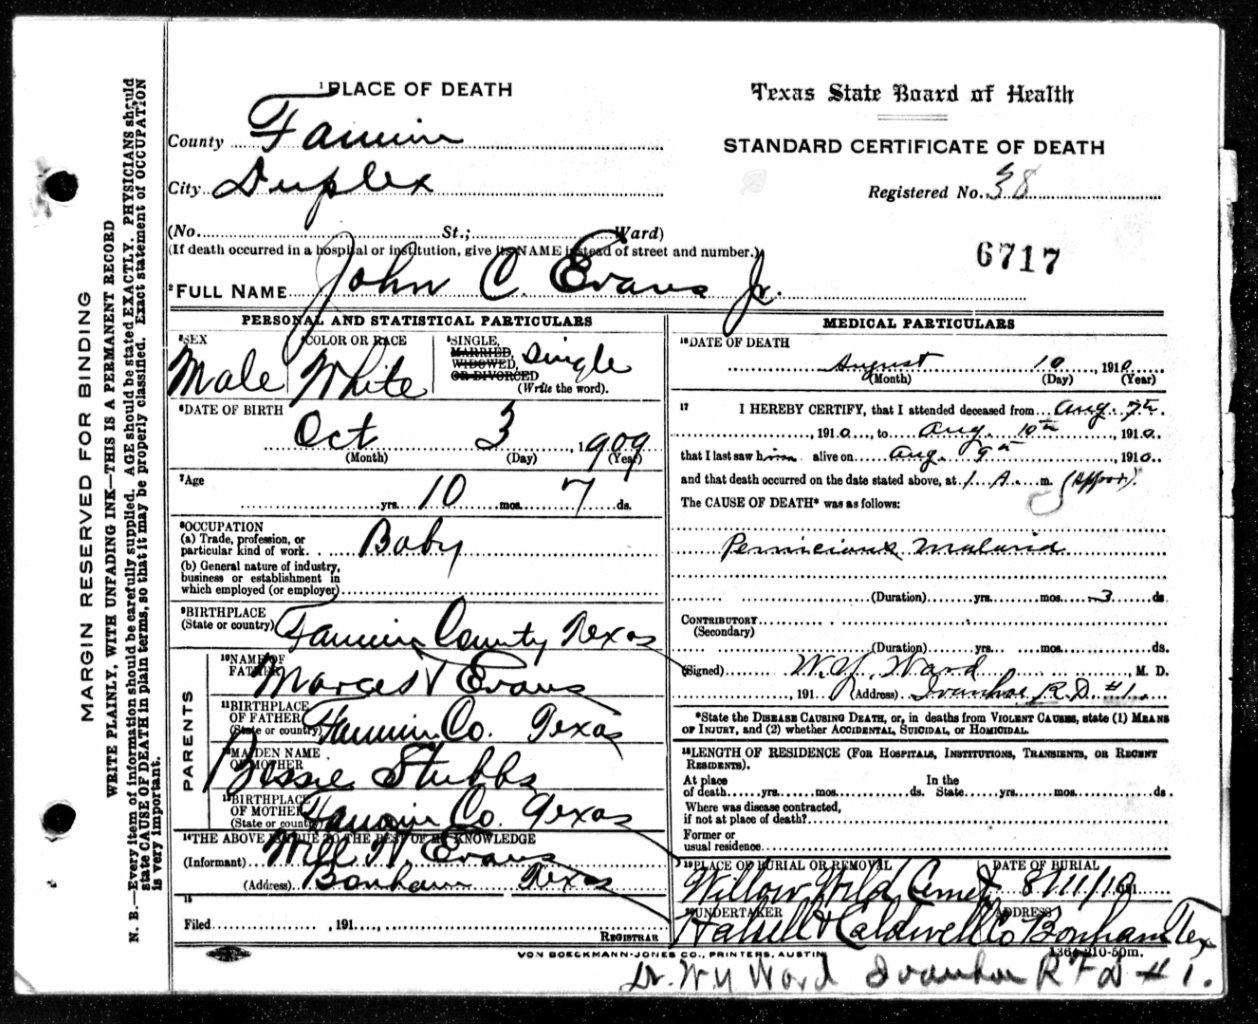 MARGIN RESERVED FOR BINDING
WRITE PLAINLY, WITH UNFADING INK—THIS IS A PERMANENT RECORD
N. B.—Every item of information should be carefully supplied. AGE should be stated EXACTLY. PHYSICIANS should
state CAUSE OF DEATH in plain terms, so that it may be properly classified. Exact statement of OCCUPATION
is very important.
1 PLACE OF DEATH
County Fannin
City Duplex
(No. St.; Ward)
(If death occurred in a hospital or institution, give its NAME instead of street and number.)
2 FULL NAME John C. Evans Jr.
Texas State Board of Health
STANDARD CERTIFICATE OF DEATH
Registered No. 38
6717
PERSONAL AND STATISTICAL PARTICULARS
3 SEX Male
4 COLOR OR RACE White
5 SINGLE, MARRIED, WIDOWED, OR DIVORCED Single
(Write the word).
6 DATE OF BIRTH
Oct 3, 1909
(Month) (Day) (Year)
7 Age
yrs. 10 mos. 7 ds.
8 OCCUPATION
(a) Trade, profession, or
particular kind of work. Baby
(b) General nature of industry,
business or establishment in
which employed (or employer)
9 BIRTHPLACE
(State or country) Fannin County Texas
PARENTS
10 NAME OF
FATHER Evans
11 BIRTHPLACE
OF FATHER
(State or country) Fannin Co. Texas
12 MAIDEN NAME
OF MOTHER Bessie Stubbs
13 BIRTHPLACE
OF MOTHER
(State or country) Fannin Co. Texas
14 THE ABOVE IS TRUE TO THE BEST OF MY KNOWLEDGE
(Informant) Evans
(Address) Bonham Texas
15
Filed , 191
REGISTRAR
MEDICAL PARTICULARS
16 DATE OF DEATH
August 10, 1910
(Month) (Day) (Year)
17 I HEREBY CERTIFY, that I attended deceased from Aug. 7th.
, 1910, to Aug. 10th, 1910.
that I last saw him alive on Aug. 9th, 1910.
and that death occurred on the date stated above, at 1 A. m. (Approx).
The CAUSE OF DEATH* was as follows:
Pernicious Malaria
(Duration) yrs. mos. 3 ds.
CONTRIBUTORY
(Secondary)
(Duration) yrs. mos. ds.
(Signed) Ward, M. D.
, 191 (Address) Ivanhoe R.D. #1.
*State the DISEASE CAUSING DEATH, or, in deaths from VIOLENT CAUSES, state (1) MEANS
OF INJURY, and (2) whether ACCIDENTAL, SUICIDAL, OR HOMICIDAL.
18 LENGTH OF RESIDENCE (FOR HOSPITALS, INSTITUTIONS, TRANSIENTS, OR RECENT
RESIDENTS).
At place In the
of death yrs. mos. ds. State yrs. mos. ds.
Where was disease contracted,
if not at place of death?
Former or
usual residence
19 PLACE OF BURIAL OR REMOVAL Willow Wild Cemet
DATE OF BURIAL 8/11/10 191
20 UNDERTAKER Halsell & Caldwell Co
ADDRESS Bonham Tex
1364-210-50m.
VON BOECKMANN-JONES CO., PRINTERS, AUSTIN
Dr. Ward Ivanhoe R F D #1.